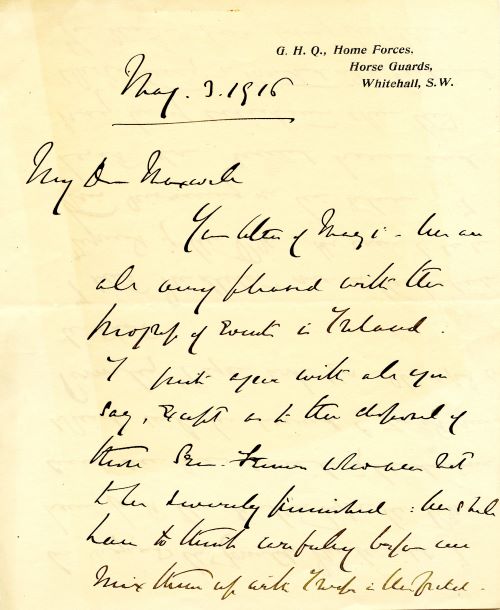 G. H. Q., Home Forces.
Horse Guards,
Whitehall, S.W.
May. 3. 1916
My Dear Maxwell
Your letter of May 1 - we are
all very pleased with the
progress of Events in Ireland.
I quite agree with all you
say, Except as to the disposal of
those Sinn Feiners who are not
to be severely punished: we shall
have to think carefully before we
mix them up with Troops in the field.